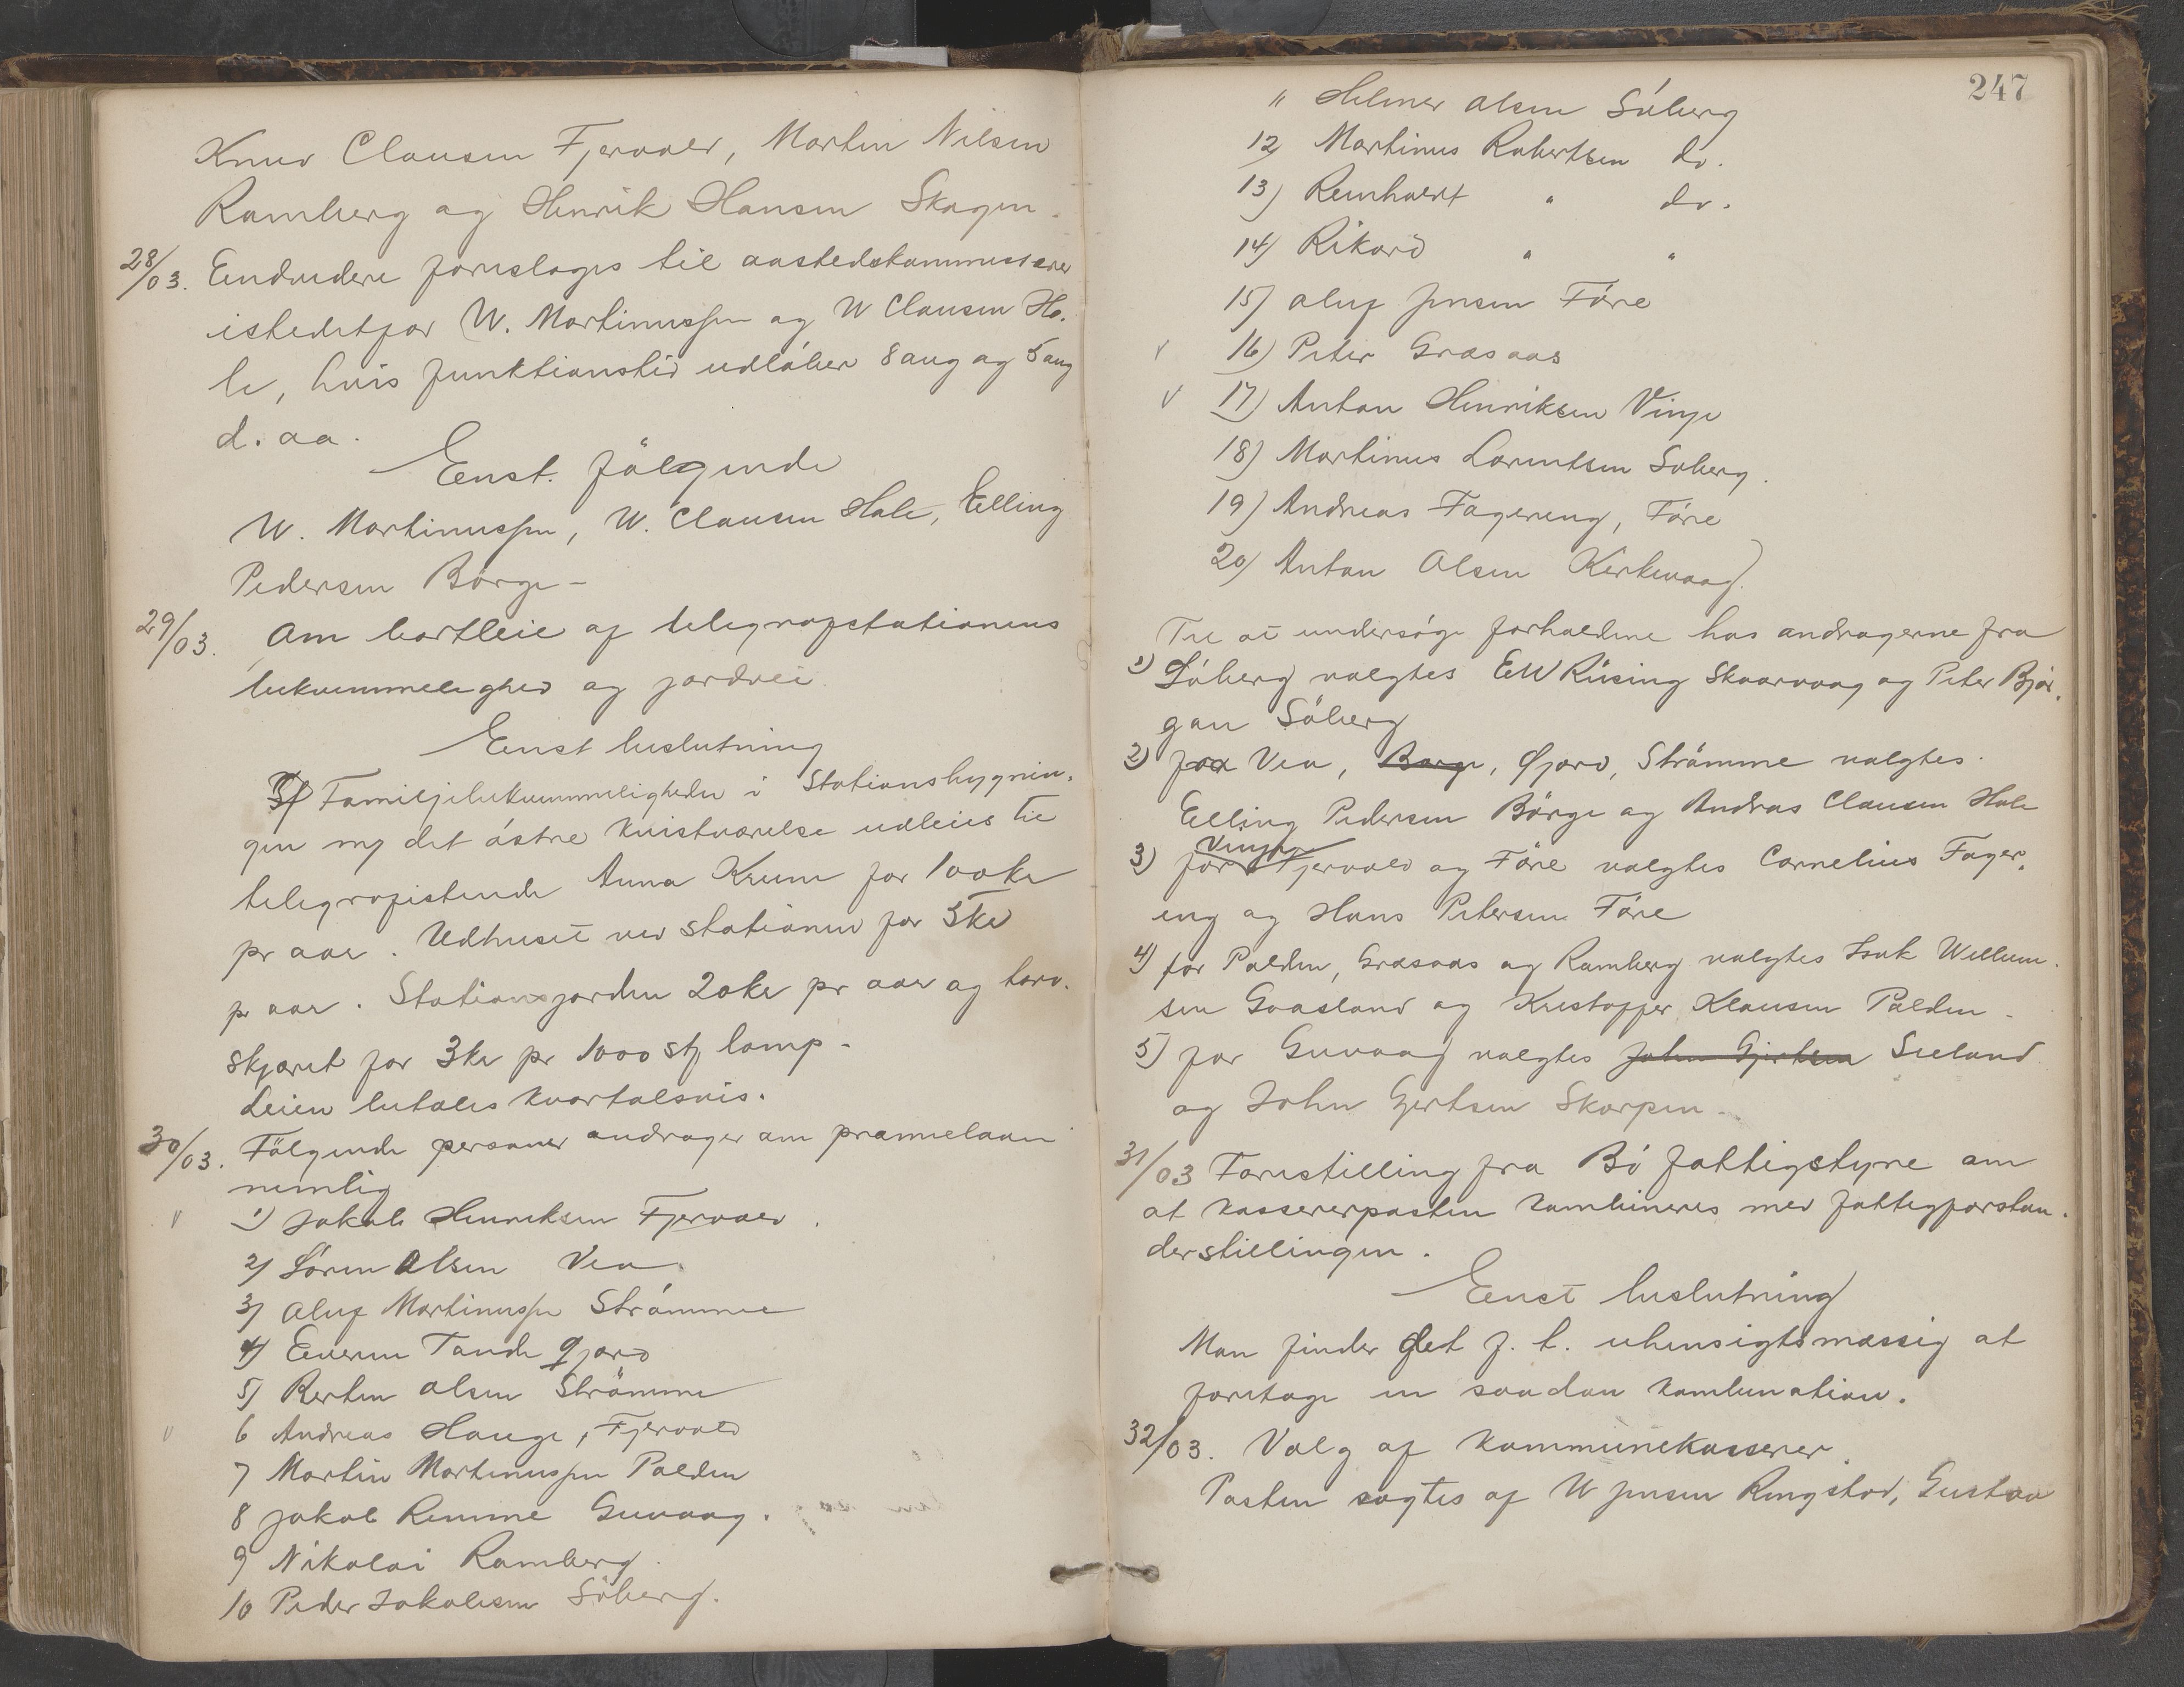 Knud Clausen Fjærvold, Martin Nilsen
Ramberg og Henrik Hansen Skagen.
28/03. Eendvidere foreslages til aastedskommissærer
istedetfor W. Martinussen og W Clausen Ho-
le, hvis funktionstid udløber 8 aug og 5 aug
d. aa.
Eenst. følgende
W. Martinussen, W. Clausen Hole, Elling
Pedersen Børge –
29/03. Om bortleie af telegrafstationens
bekvemmelighed og jordvei
Eenst beslutning
Familjebekvemmeligheden i Stationsbygnin-
gen m/ det østre kvistværelse udleies til
telegrafistinde Anna Krum for 100 kr
pr aar. Udhuset ved stationen for 5 kr
pr aar. Stationsjorden 20 kr pr aar og torv-
skjæret for 3 kr pr 1000 stk lomp.
Leien betales kvartalsvis.
30/03. Følgende personer andrager om præmielaan
nemlig
v 1) Jakob Henriksen Fjærvold.
2) Søren Olsen Vea
3) Oluf Martinussen Strømme
4) Eenerm Tande Øjord
5) Berten Olsen Strømme
v 6 Andreas Hauge, Fjærvold
7 Martin Martinussen Palden
8 Jakob Remme Guvaag.
9 Nikolai Ramberg.
10 Peder Jakobsen Søberg.
247
" Helmer Olsen Søberg
12) Martinus Robertsen do.
13) Reinhardt " do.
14) Rikard " "
15) Oluf Jensen Føre
v 16) Peter Græsaas
v 17) Anton Henriksen Vinje
18) Martinus Lorentsen Søberg.
19) Andreas Fagereng, Føre
20) Anton Olsen Kirkevaag.
Til at undersøge forholdene hos andragerne fra
1) Søberg valgtes E W Rüsing Skaarvaag og Peter Bjør-
gan Søberg
2) fra Vea, Børge, Øjord, Strømme valgtes
Elling Pedersen Børge og Andras Clausen Hole
3) for Vinje Fjærvold og Føre valgtes Cornelius Fager-
eng og Hans Petersen Føre
4) for Palden, Græsaas og Ramberg valgtes Isak Willum-
sen Gaasland og Kristoffer Klausen Palden –
5) for Guvaag valgtes John Gjertsen Sieland
og John Gjertsen Skarpen –
31/03 Forestilling fra Bø fattigstyre om
at kassererposten kombineres med fattigforstan-
derstillingen.
Eenst beslutning
Man finder det f. t. uhensigtsmæssig at
foretage en saadan kombination.
32/03. Valg af kommunekasserer.
Posten søgtes af W Jensen Ringstad, Gustav